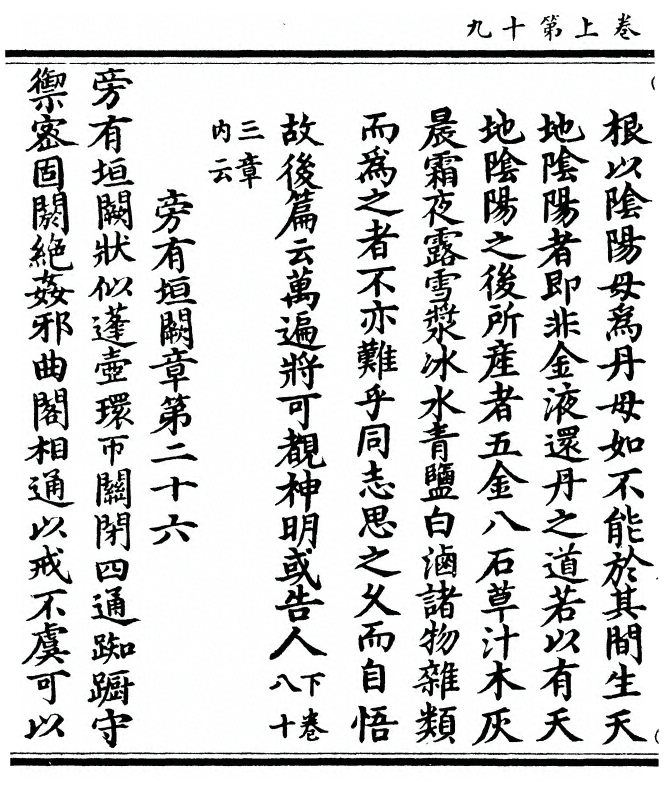 卷上第十九
根以陰陽母爲丹母如不能於其間生天
地陰陽者即非金液還丹之道若以有天
地陰陽之後所産者五金八石草汁木灰
晨霜夜露雪漿冰水青鹽白滷諸物雜類
而爲之者不亦難乎同志思之久而自悟
故後篇云萬遍將可覩神明或告人下卷八十
三章内云
旁有垣闕章第二十六
旁有垣闕狀似蓬壺環帀關閉四通踟躕守
禦密固閼絶姦邪曲閣相通以戒不虞可以